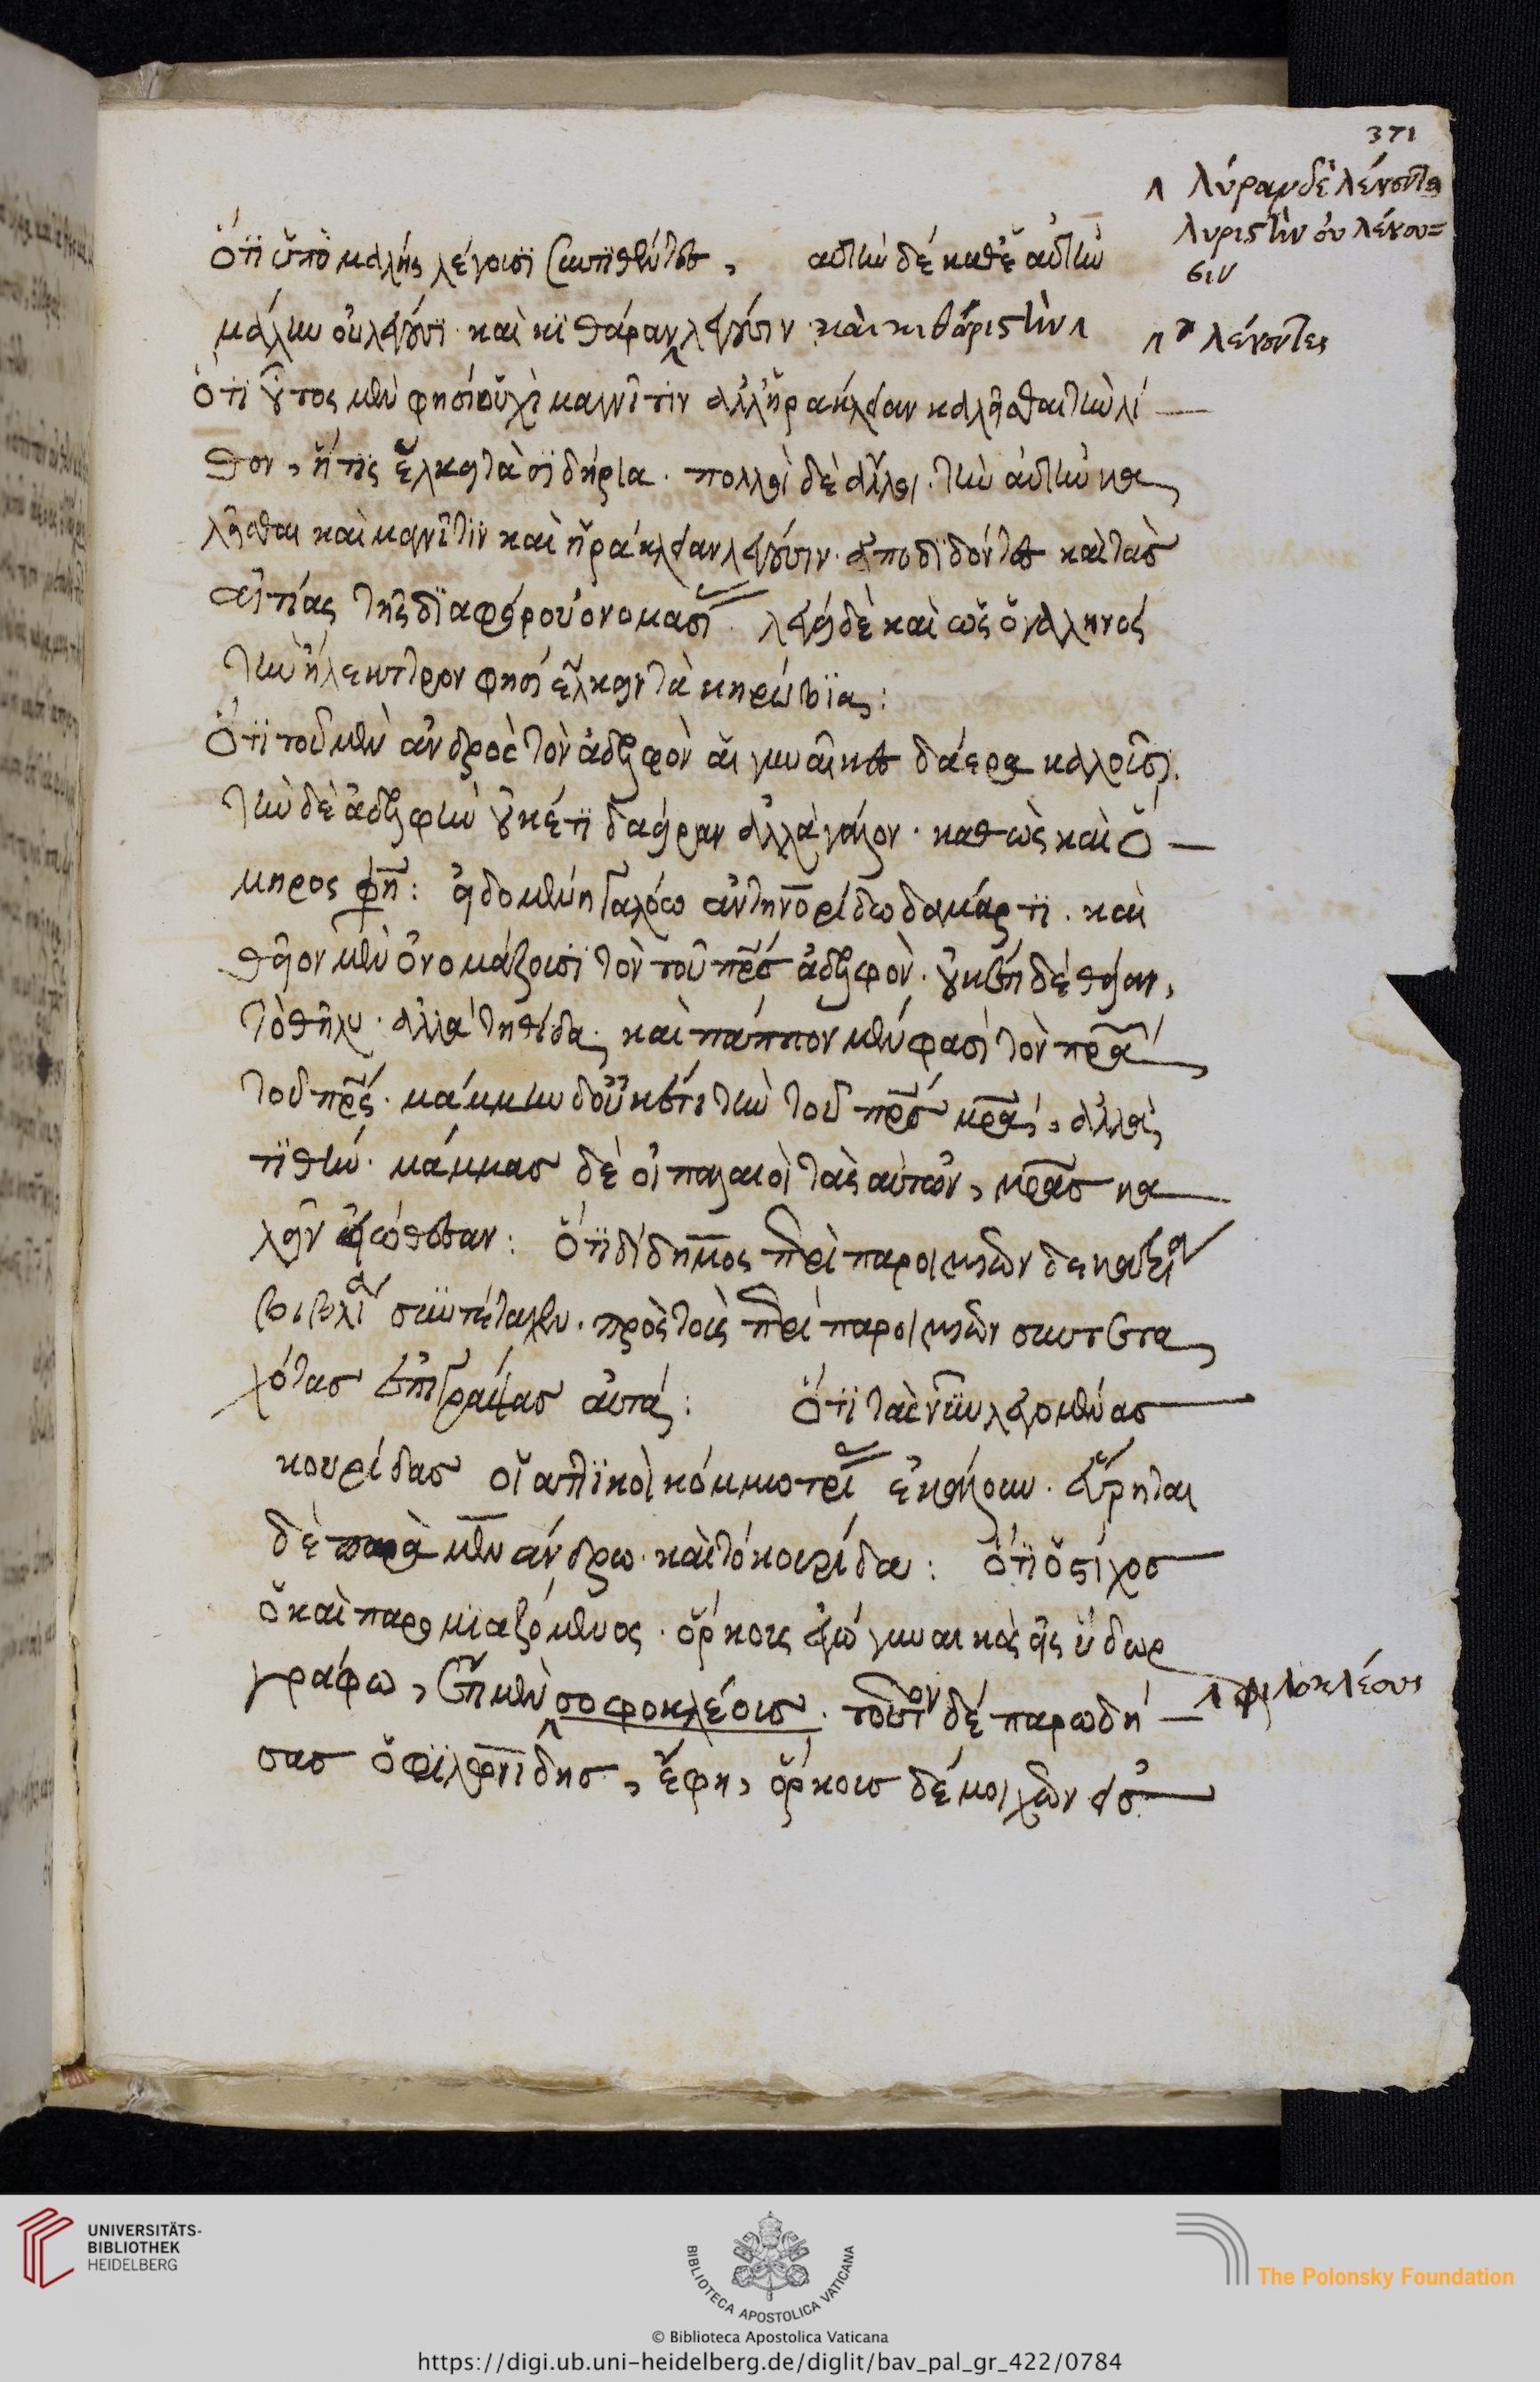 371
λύραν δὲ λέγοντες
λυριστὴν οὐ λέγου=
σιν
ὅτι ὑπὸ μάλης λέγουσι συντιθέντες, αὐτὴν δὲ καθ' αὑτὴν
μάλην οὐ λέγουσι· καὶ κιθάραν λέγουσιν καὶ κιθαριστὴν
λέγοντες
ὅτι οὗτος μέν φησι οὐχὶ μαγνῆτιν ἀλλ' ἡράκλειαν καλεῖσθαι τὴν λί
θον, ἥτις ἕλκει τὰ σιδήρια. πολλοὶ δὲ ἄλλοι τὴν αὐτὴν κα
λεῖσθαι καὶ μαγνῆτιν καὶ ἡράκλειαν λέγουσιν· ἀποδιδόντες καὶ τὰς
αἰτίας τῆς διαφόρου ὀνομασί λέγει δὲ καὶ ὡς ὁ γαληνός
τὴν ἤλεκτρον φησὶ ἕλκειν τὰ κηρώβια:
ὅτι τοῦ μὲν ἀνδρὸς τὸν ἀδελφὸν αἱ γυναῖκες δάερα καλοῦσι.
τὴν δὲ ἀδελφὴν οὐκέτι δαείραν ἀλλὰ γάλων· καθὼς καὶ ὅ
μηρος φη: εἰδομένη γαλόω ἀντηνορίδαο δάμαρτι. καὶ
θεῖον μὲν ὀνομάζουσι τὸν τοῦ πρς ἀδελφὸν· οὐκέτι δὲ θείαν,
τὸ θῆλυ· ἀλλὰ τηθίδα· καὶ πάππον μὲν φασὶ τὸν πρα
τοῦ πρς· μάμμην δ' οὐκέτι τὴν τοῦ πρς μρα, ἀλλὰ
τιθήν· μάμμας δὲ οἱ παλαιοὶ τὰς αὐτῶν, μρας κα
λεῖν εἰώθεσαν: ὅτι δίδυμος περὶ παροιμιῶν δεκατρία
βιβλία συντέταχεν· πρὸς τοὺς περὶ παροιμιῶν συντετα
χότας ἐπιγράψας αὐτά: ὅτι τὰς νῦν λεγομένας
κουρίδας οἱ ἀττικοὶ κομμωτρί ἐκάλουν. εἴρηται
δὲ παρὰ μενάνδρω καὶ τὸ κουρίδα: ὅτι ὁ στίχος
ὁ καὶ παροιμιαζόμενος· ὅρκους ἐγὼ γυναικὸς εἰς ὕδωρ
γράφω, ἔστι μὲν σοφοκλέους. τοῦτον δὲ παρωδή
φιλοκλέους
σας ὁ φιλωνίδης, ἔφη, ὅρκους δὲ μοιχῶν εἰς
UNIVERSITÄTS-
BIBLIOTHEK
HEIDELBERG
BIBLIOTECA APOSTOLICA VATICANA
The Polonsky Foundation
© Biblioteca Apostolica Vaticana
https://digi.ub.uni-heidelberg.de/diglit/bav_pal_gr_422/0784